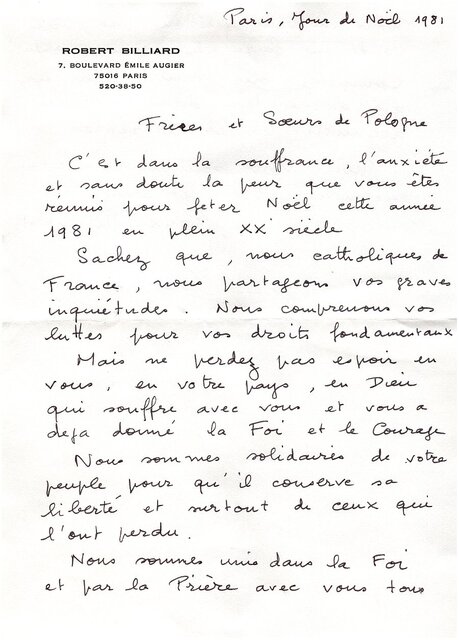 Paris, Jour de Noël 1981
ROBERT BILLIARD
7, BOULEVARD ÉMILE AUGIER
75016 PARIS
520-38-50
Frères et Sœurs de Pologne
C'est dans la souffrance, l'anxiété
et sans doute la peur que vous êtes
réunis pour feter Noël cette année
1981 en plein XX siècle
Sachez que, nous catholiques de
France, nous partageons vos graves
inquiétudes. Nous comprenons vos
luttes pour vos droits fondamentaux
Mais ne perdez pas espoir en
vous, en votre pays, en Dieu
qui souffre avec vous et vous a
deja donné la Foi et le Courage
Nous sommes solidaires de votre
peuple pour qu'il conserve sa
liberté et surtout de ceux qui
l'ont perdu.
Nous sommes unis dans la Foi
et par la Prière avec vous tous